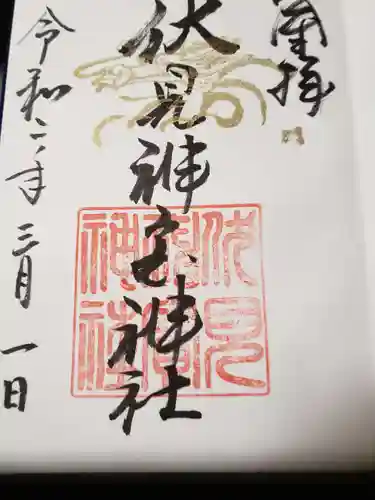 奉拝
伏見神宝神社
伏見
神宝
神社
令和二年三月一日